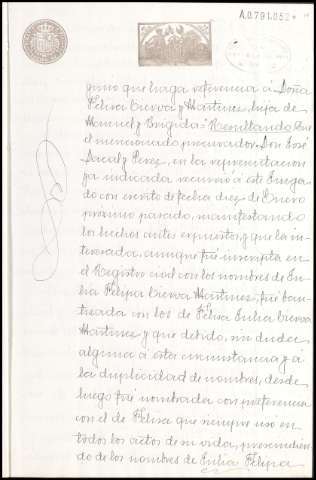 A.0.791.052*
guno que haga referencia á Doña
Felisa Cierva y Martinez, hija de
Manuel y Brígida: Resultando Que
el mencionado procurador Don José
y Perez, en la representacion
ya indicada recurrió á este Juzga
do con escrito de fecha diez de Enero
proximo pasado, manifestando
los hechos antes expuestos, y que la in-
teresada, aunque fué inscripta en
el Registro civil con los nombres de Eu
lia Felipa Cierva Martinez, fué bau
tizada con los de Felisa Eulia Cierva
Martinez y que debido, sin duda
alguna á esta circunstancia y á
la duplicidad de nombres, desde
luego fué nombrada con preferencia
con el de Felisa que siempre usó en
todos los actos de su vida, prescindien
do de los nombres de Eulia Felipa